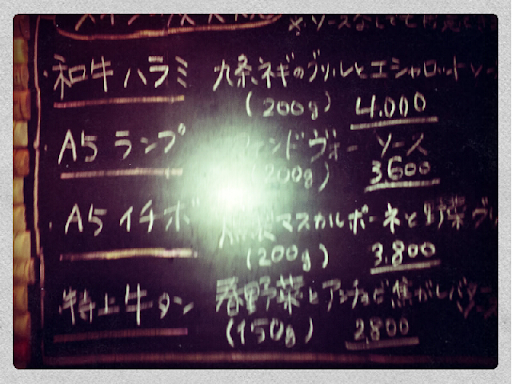 ※ソースなしでも
和牛ハラミ 九条ネギのグリルとエシャロット
(200g) 4.000
A5 ランプ フォンドヴォー ソース
200g) 3600
A5 イチボ マスカルポーネと野菜グリ
(200g) 3.800
特上牛タン 春野菜とアンチョビ焦がしバター
(150g) 2800